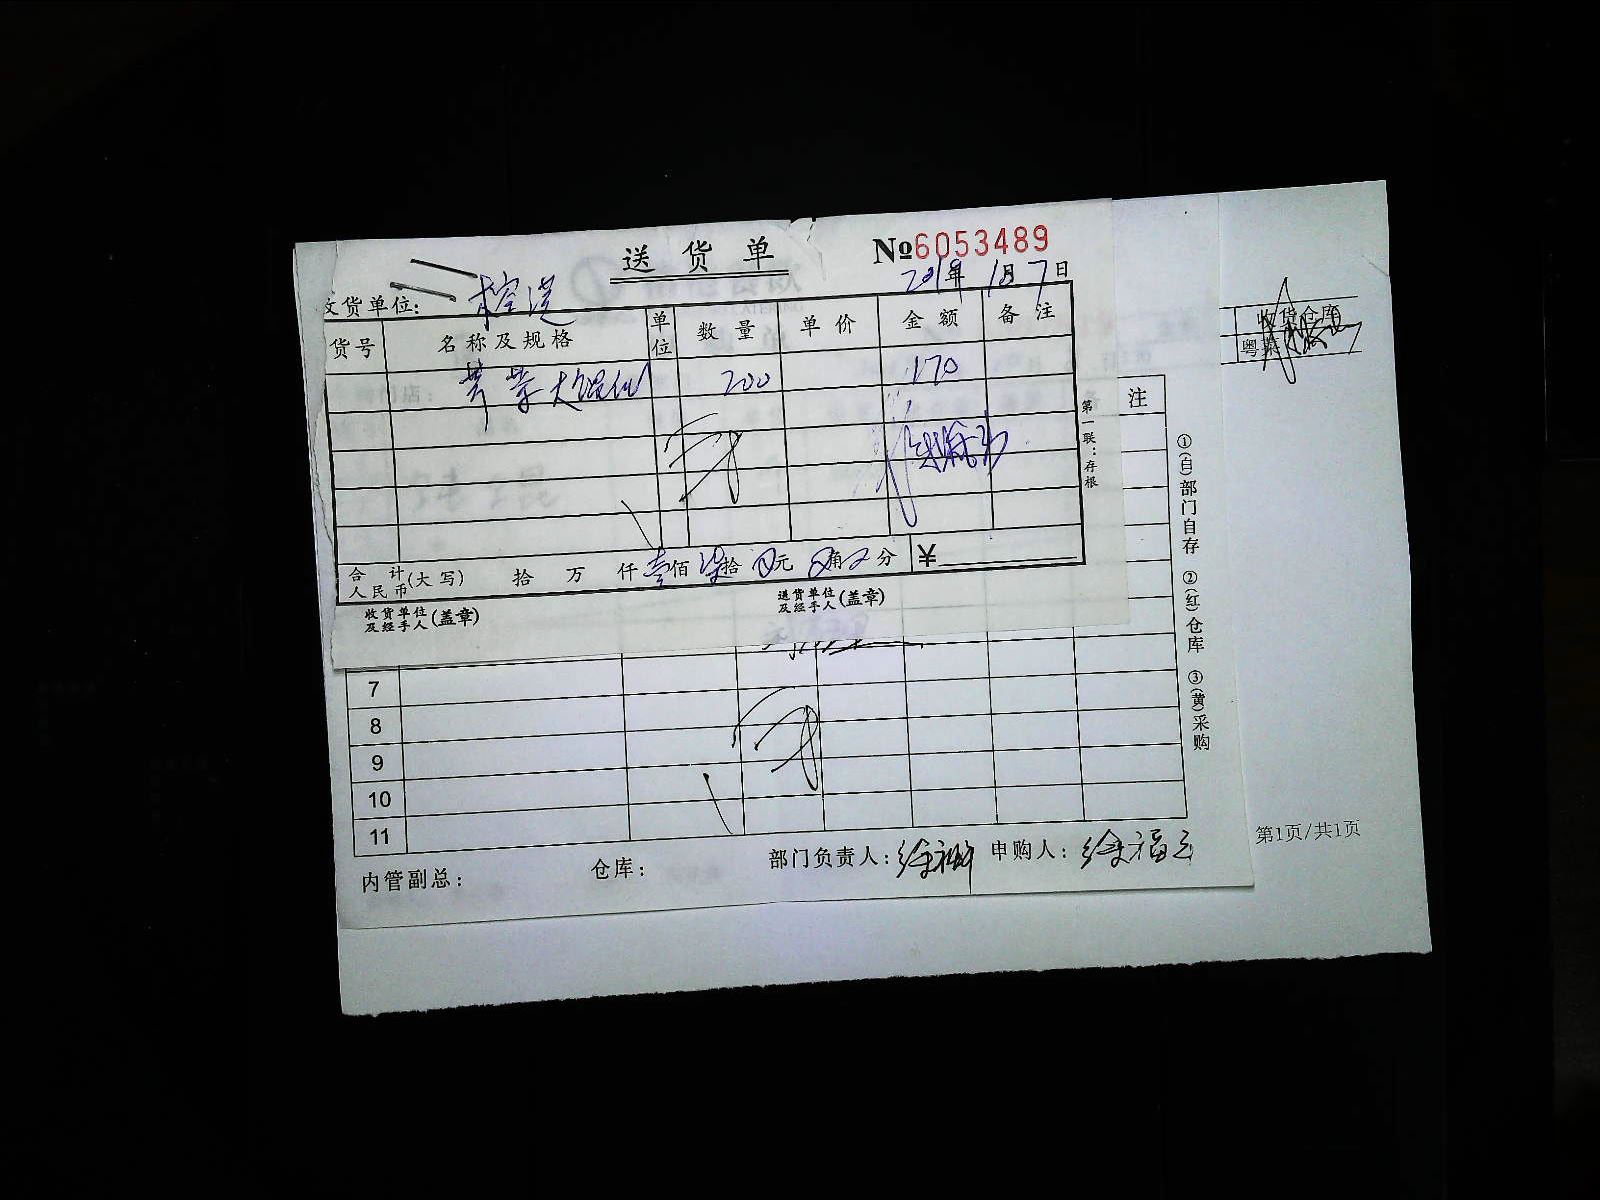 送货单
№6053489
2019年1月7日
收货单位:
货号 名称及规格 单位 数量 单价 金额 备注
荠菜大馄饨 200 170
第一联:存根
合计人民币(大写) 拾 万 仟 壹佰 柒拾 0元 0角 0分 ¥
收货单位及经手人(盖章) 送货单位及经手人(盖章)
收货仓库
粤菜
注
①(自)部门自存 ②(红)仓库 ③(黄)采购
7
8
9
10
11
内管副总: 仓库: 部门负责人: 申购人: 徐福云
第1页/共1页